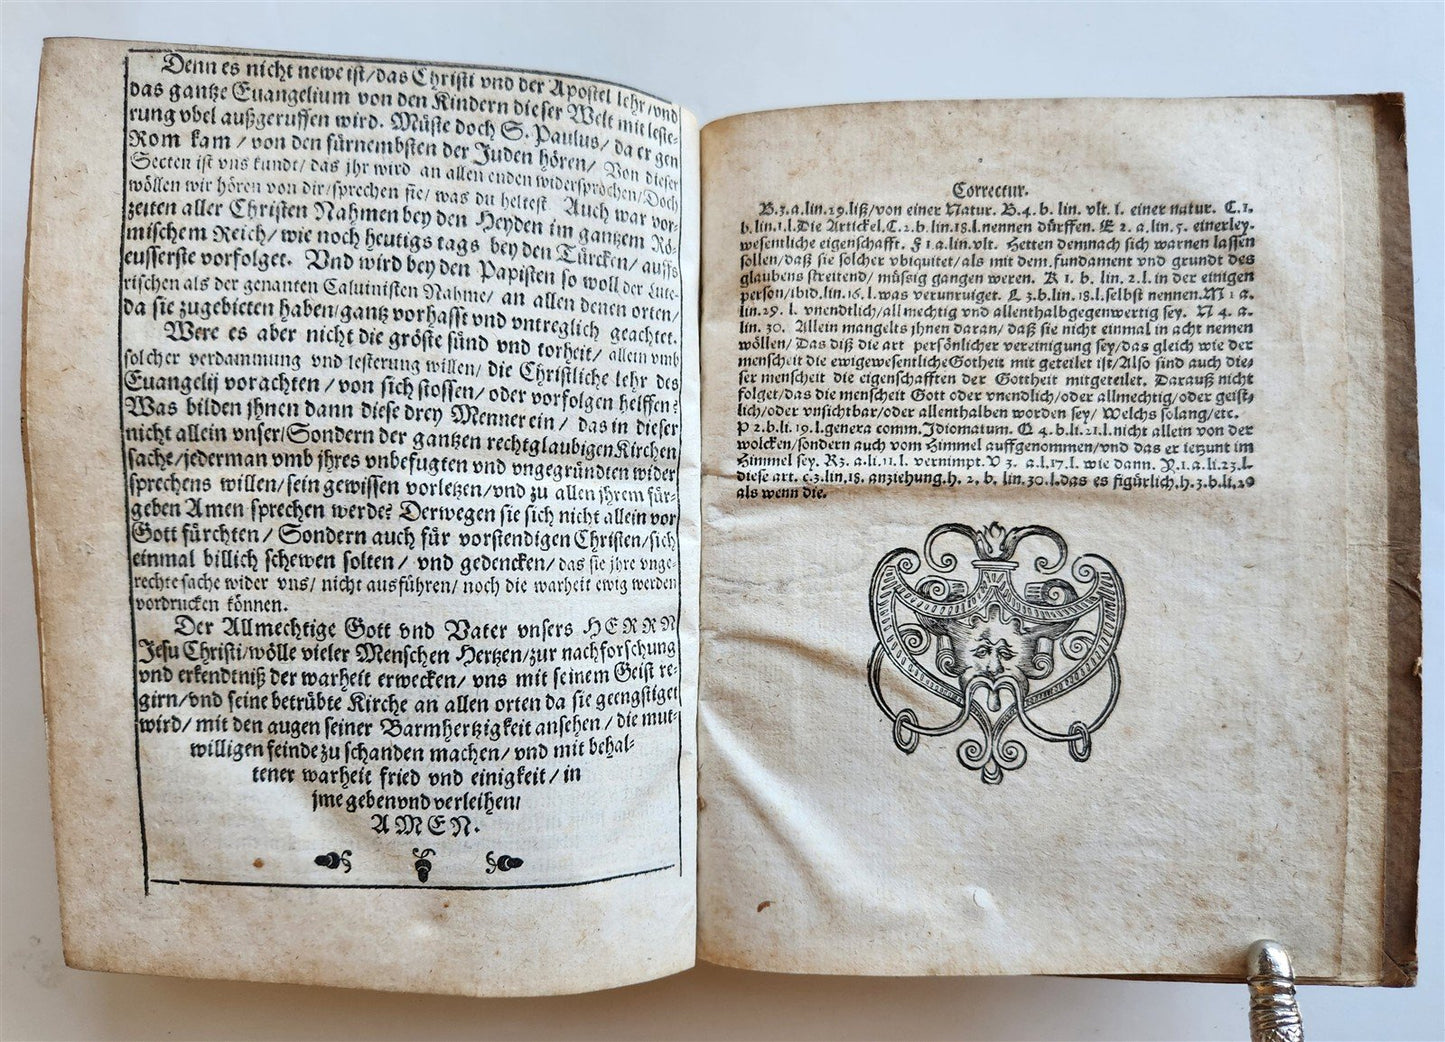 Denn es nicht newe ist/das Christi vnd der Apostel lehr/vnd
das gantze Euangelium von den Kindern dieser Welt mit leste-
rung vbel außgeruffen wird. Müste doch S. Paulus/ da er gen
Rom kam/ von den fürnembsten der Juden hören/ Von dieser
Secten ist vns kundt/ das jhr wird an allen enden widersprochen/Doch
wöllen wir hören von dir/sprechen sie/ was du heltest. Auch war vor-
zeiten aller Christen Nahmen bey den Heyden im gantzem Rö-
mischem Reich/ wie noch heutigs tags bey den Türcken/ auffs
eusserste vorfolget. Vnd wird bey den Papisten so woll der Lute-
rischen als der genanten Caluinisten Nahme/ an allen denen orten/
da sie zugebieten haben/gantz vorhasst vnd vntreglich geachtet.
Were es aber nicht die gröste sünd vnd torheit/ allein vmb
solcher verdammung vnd lesterung willen/ die Christliche lehr des
Euangelij vorachten/ von sich stossen/ oder vorfolgen helffen?
Was bilden jhnen dann diese drey Menner ein/ das in dieser
nicht allein vnser/Sondern der gantzen rechtglaubigen Kirchen
sache/jederman vmb jhres vnbefugten vnd vngegründten wider
sprechens willen/sein gewissen vorletzen/vnd zu allen jhrem für-
geben Amen sprechen werde? Derwegen sie sich nicht allein vor
Gott fürchten/ Sondern auch für vorstendigen Christen/sich
einmal billich schewen solten/ vnd gedencken/ das sie jhre vnge-
rechte sache wider vns/ nicht ausführen/ noch die warheit ewig werden
vordrucken können.
Der Allmechtige Gott vnd Vater vnsers HERRN
Jesu Christi/wölle vieler Menschen Hertzen/zur nachforschung
vnd erkendtniß der warheit erwecken/ vns mit seinem Geist re-
girn/vnd seine betrübte Kirche an allen orten da sie geengstiget
wird/ mit den augen seiner Barmhertzigkeit ansehen/ die mut-
willigen feinde zu schanden machen/ vnd mit behal-
tener warheit fried vnd einigkeit/ in
jme geben vnd verleihen/
AMEN.
Correctur.
B. 3. a. lin. 29. liß/von einer Natur. B. 4. b. lin. vlt. l. einer natur. C. 1.
b. lin. 1. l. Die Artickel. C. 2. b. lin. 18. l. nennen dürffen. E 2. a. lin. 5. einerley-
wesentliche eigenschafft. F 1 a. lin. vlt. Hetten demnach sich warnen lassen
sollen/daß sie solcher vbiquitet/als mit dem fundament vnd grundt des
glaubens streitend/ müssig gangen weren. K 1. b. lin. 2. l. in der einigen
person/ibid. lin. 16. l. was verunruiget. L 3. b. lin. 18. l. selbst nennen. M 1 a.
lin. 29. l. vnendtlich/allmechtig vnd allenthalbgegenwertig sey. N 4. a.
lin. 30. Allein mangelts jhnen daran/ daß sie nicht einmal in acht nemen
wöllen/ Das diß die art persönlicher vereinigung sey/das gleich wie der
menscheit die ewigewesentliche Gotheit mit geteilet ist/Also sind auch die-
ser menscheit die eigenschafften der Gottheit mitgeteilet. Darauß nicht
folget/das die menscheit Gott oder vnendlich/oder allmechtig/oder geist-
lich/oder vnsichtbar/oder allenthalben worden sey/ Welchs solang/etc.
P 2. b. li. 19. l. genera comm. Idiomatum. Q 4. b. li. 21. l. nicht allein von der
wolcken/sondern auch vom Himmel auffgenommen/vnd das er ietzunt im
Himmel sey. R 3. a. li. 11. l. vernimpt. V 3. a. l. 17. l. wie dann. Y. 1. a. li. 23. l.
diese art. c. 3. lin. 18. anziehung. h. 2. b. lin. 30. l. das es figürlich. h. 3. b. li. 29
als wenn die.